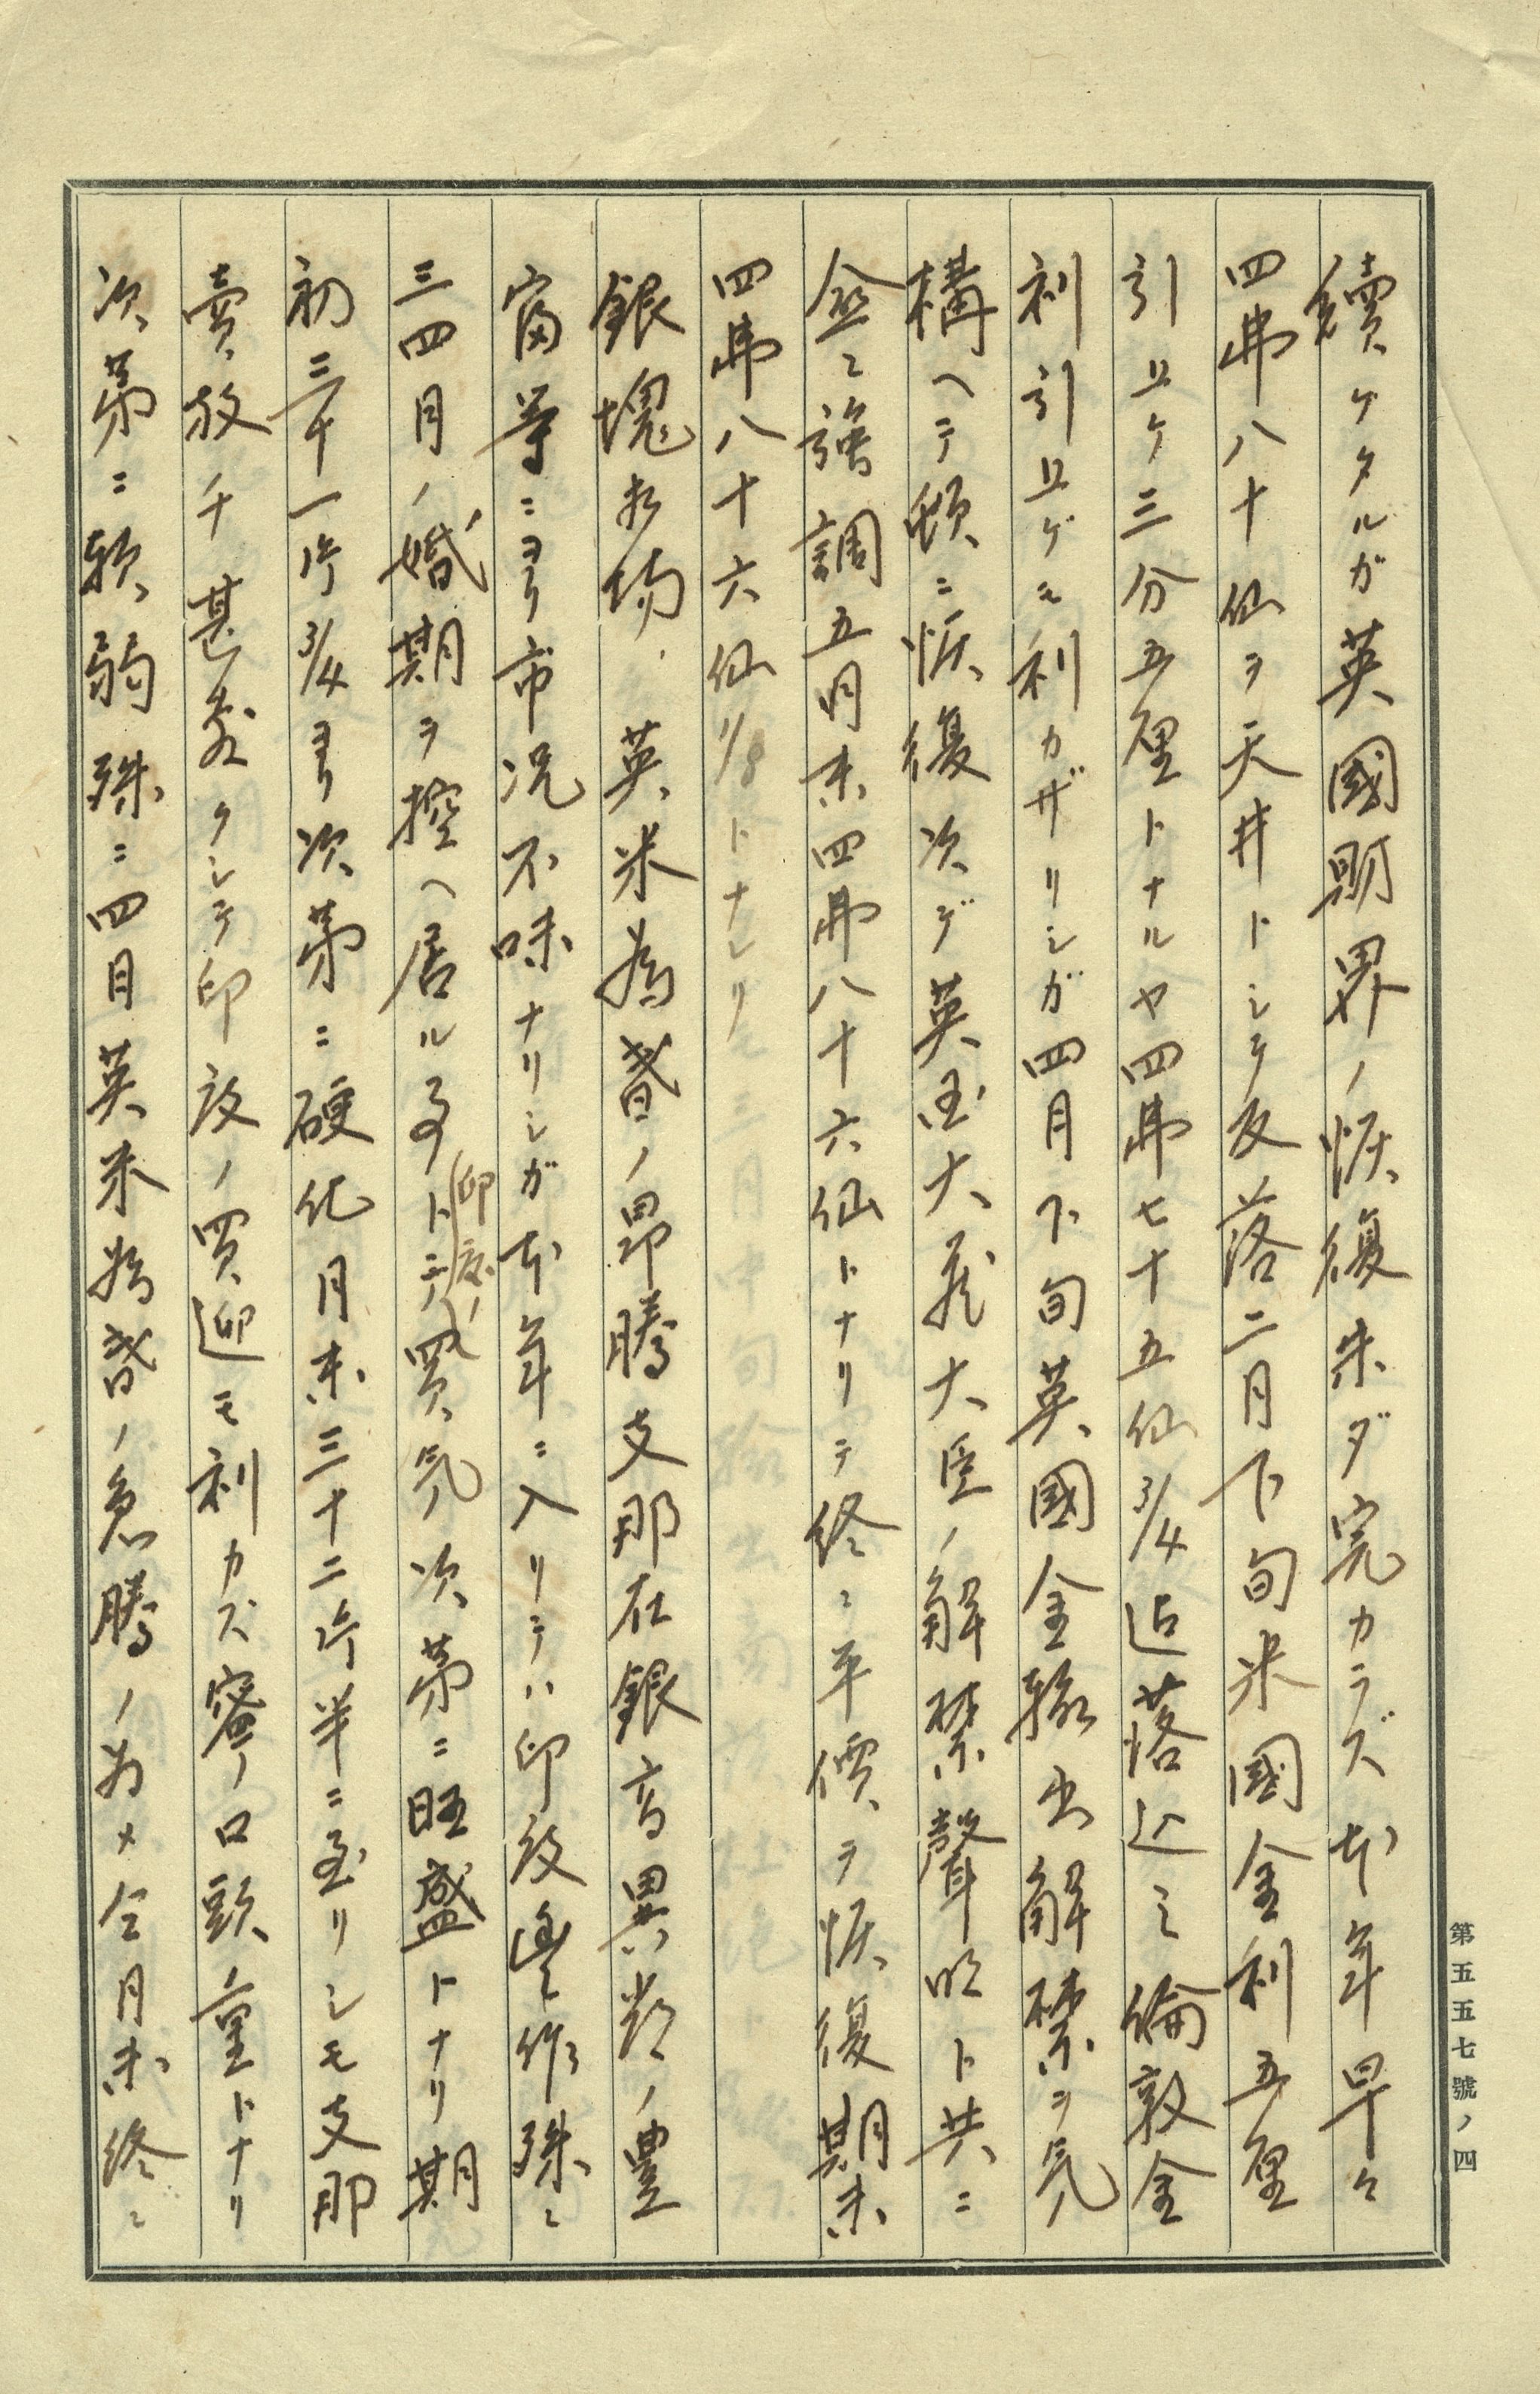 續ケタルガ英國財界ノ恢復未ダ完カラズ本年早々
四弗八十仙ヲ天井トシテ反落二月下旬米國金利五厘
引上ケ三分五厘トナルヤ四弗七十五仙3/4迠落込ミ倫敦金
利引上ゲモ利カザリシガ四月下旬英國金輸出解禁ヲ気
構ヘテ頓ニ恢復次デ英国大蔵大臣ノ解禁聲明ト共ニ
益々強調五月末四弗八十六仙トナリテ終ニ平價ヲ恢復期末
四弗八十六仙1/8トナレリ
銀塊相場．英米為替ノ昂騰支那在銀高異常ノ豊
富等ニヨリ市况不味ナリシガ本年ニ入リテハ印度豊作殊ニ
三四月ノ婚期ヲ控ヘ居ル事トテ印度ノ買気次第ニ旺盛トナリ期
初三十一片3/4ヨリ次第ニ硬化月末三十二片半ニ至リシモ支那
賣放チ甚敷クシテ印度ノ買迎モ利カズ寧ロ頭重トナリ
次第ニ軟弱殊ニ四月英米為替ノ急騰ノ為メ仝月末終ニ
第五五七號ノ四